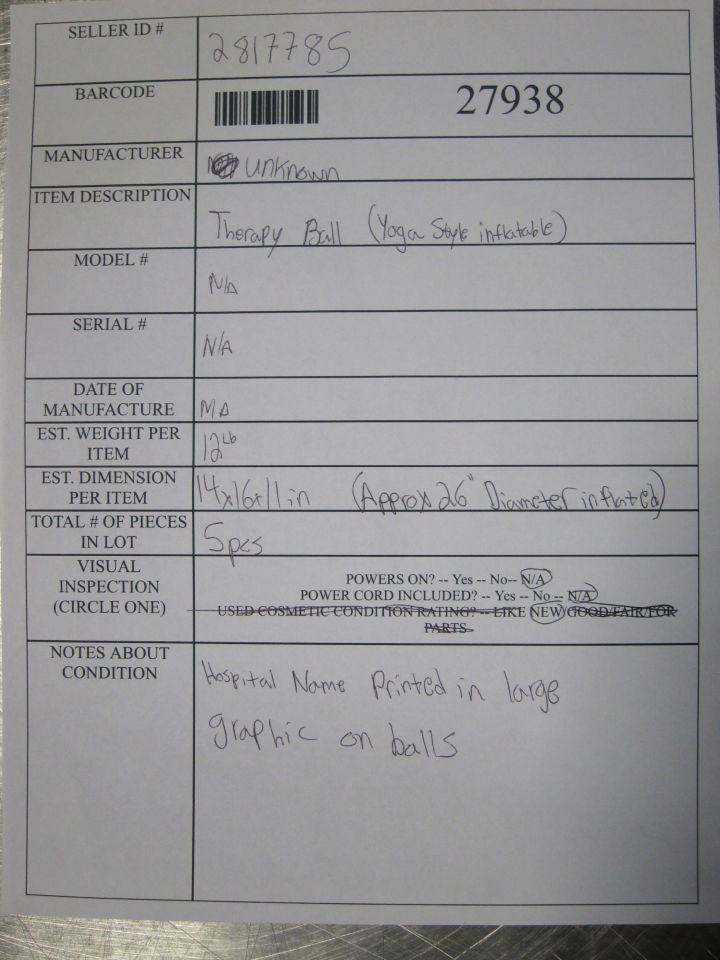 SELLER ID # 2817785
BARCODE 27938
MANUFACTURER unknown
ITEM DESCRIPTION Therapy Ball (Yoga Style inflatable)
MODEL # N/A
SERIAL # N/A
DATE OF
MANUFACTURE N/A
EST. WEIGHT PER
ITEM 12 Lb
EST. DIMENSION
PER ITEM 14x16x11 in (Approx 26" Diameter inflated)
TOTAL # OF PIECES
IN LOT 5pcs
VISUAL
INSPECTION
(CIRCLE ONE)
POWERS ON? -- Yes -- No-- N/A
POWER CORD INCLUDED? -- Yes -- No -- N/A
USED COSMETIC CONDITION RATING? -- LIKE NEW/GOOD/FAIR/FOR
PARTS
NOTES ABOUT
CONDITION
Hospital Name Printed in large
graphic on balls